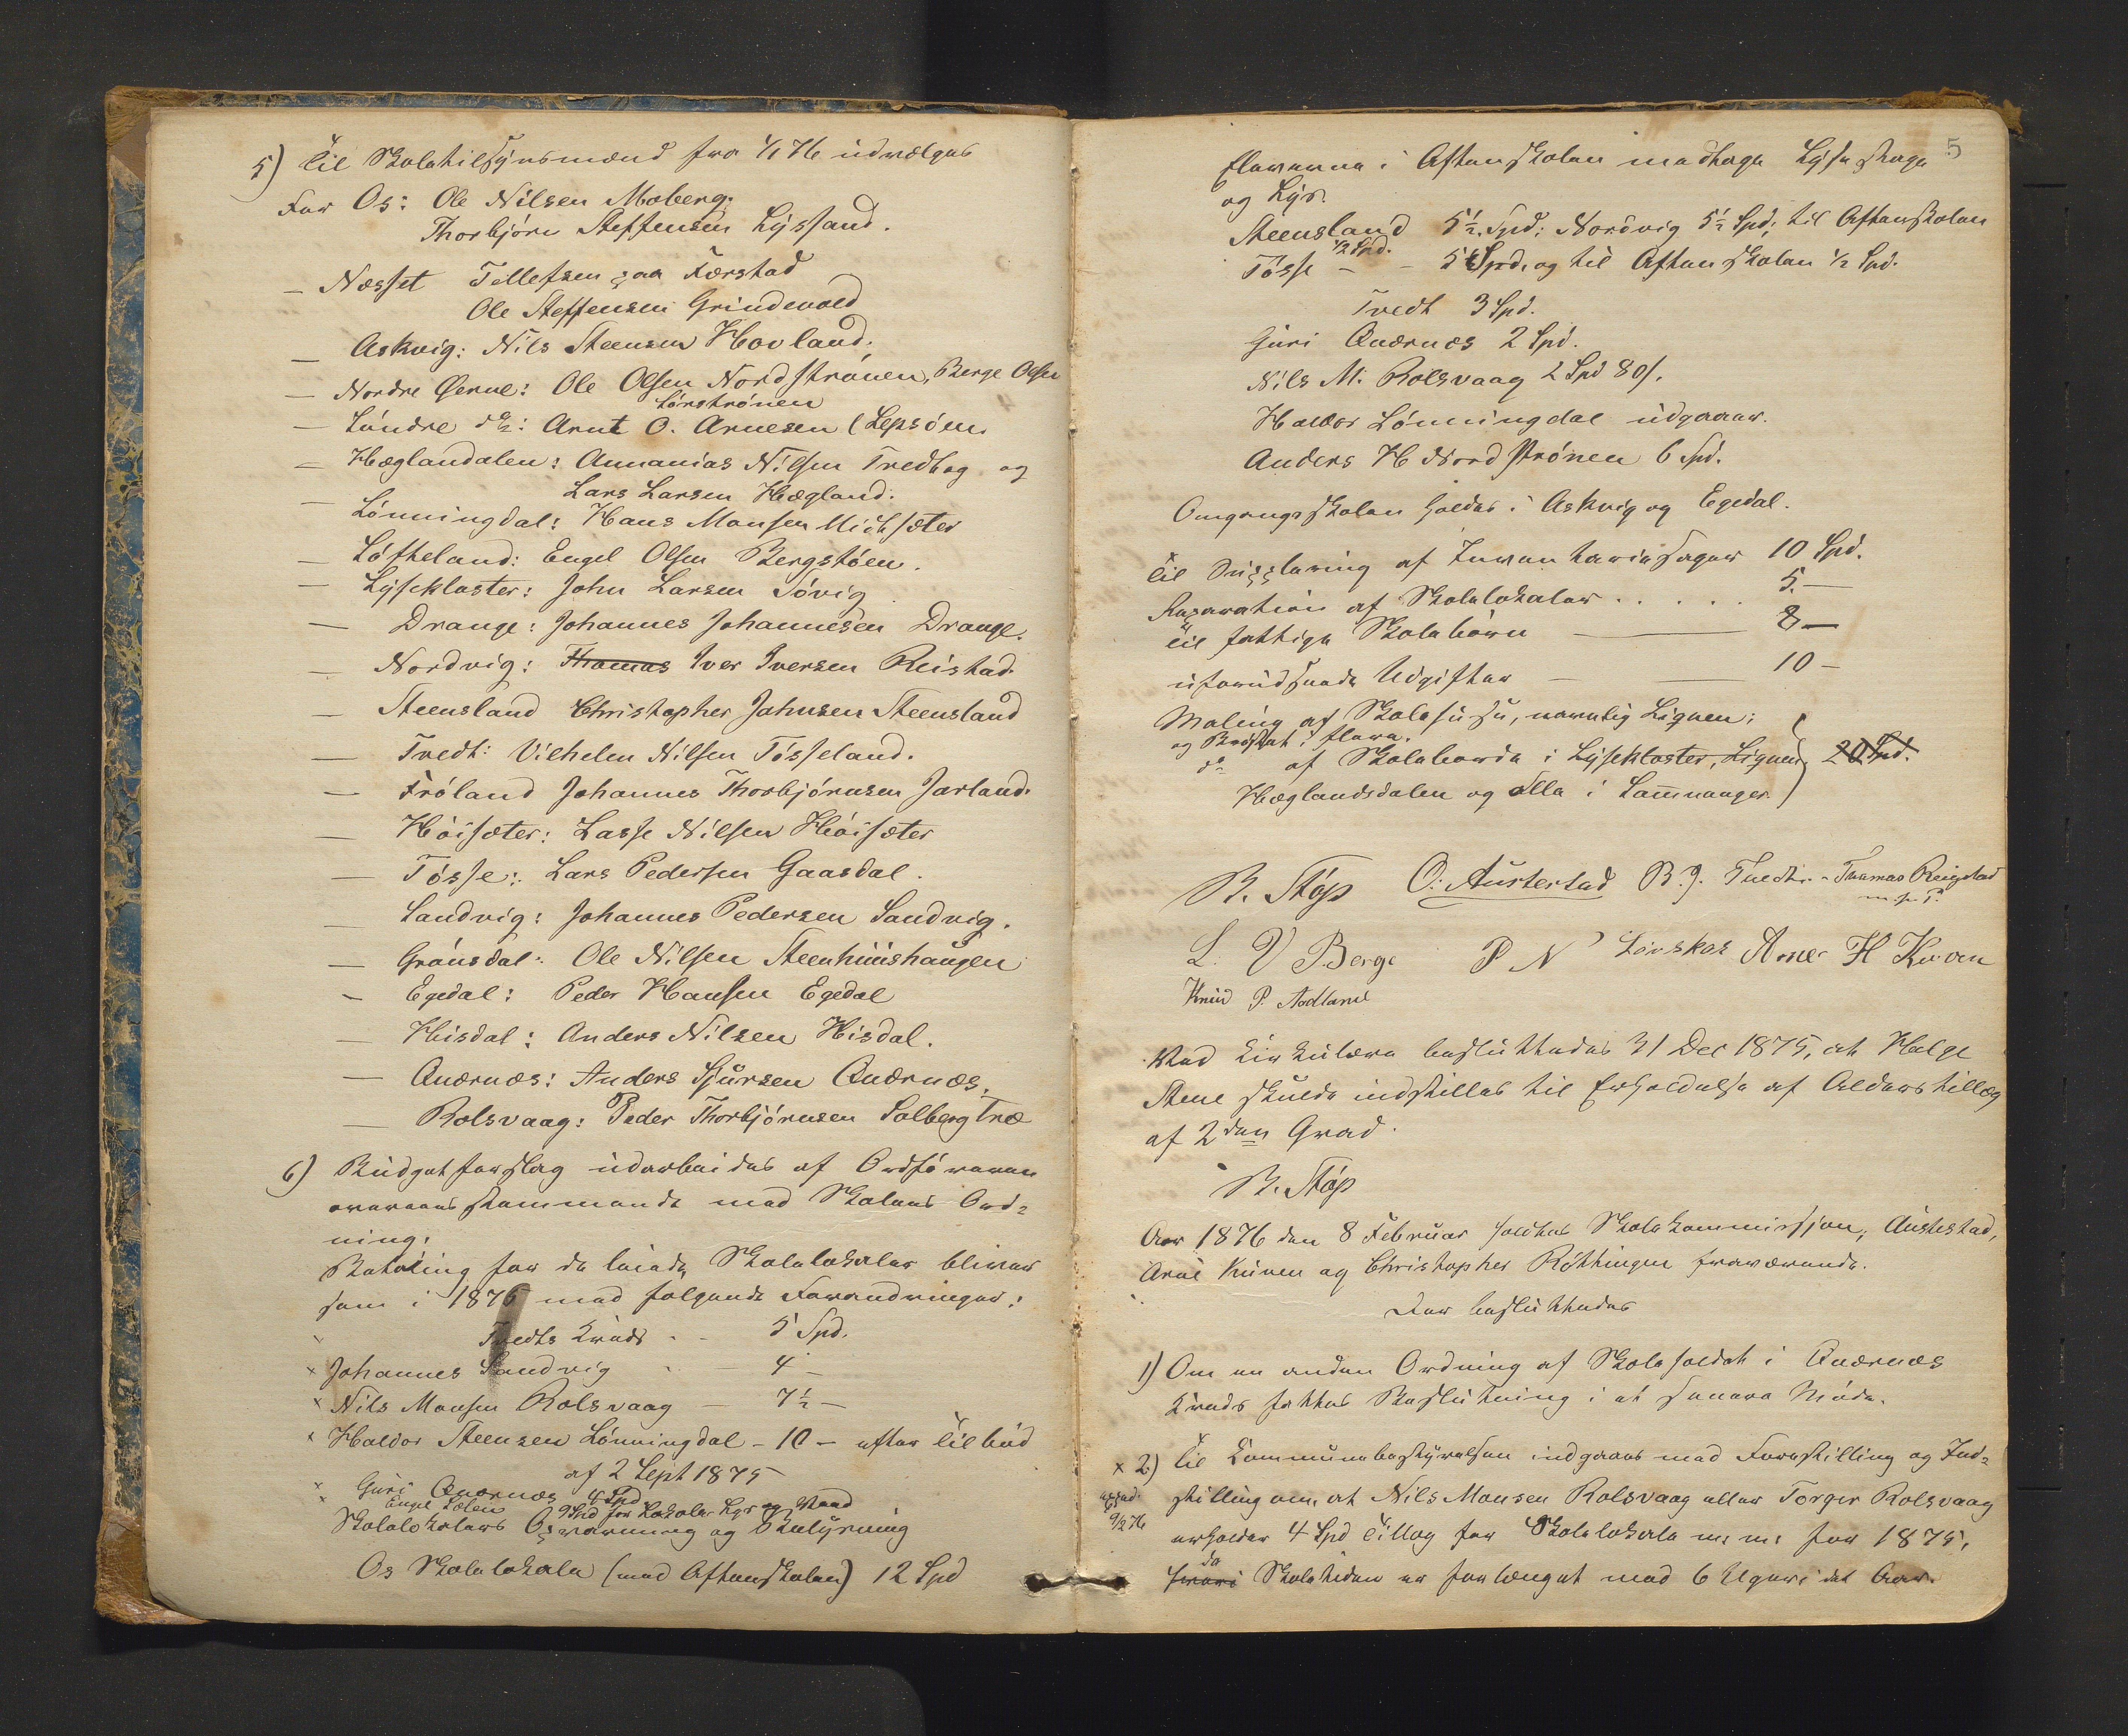 5) Til Skoletilsynsmænd fra 1/1 76 udvælges
For Os: Ole Nilsen Moberg.
Thorbjörn Steffensen Lyssand.
— Nesset Tollefsen paa Forstad
Ole Steffensen Grindevold
— Askvig: Nils Steensen Hovland.
— Nordre Øerne: Ole Olsen Nordströnen, Berge Olsen
Sörströnen
— Söndre do: Arnt O. Arnesen (Lepsöen.
— Hæglandalen: Annanias Nilsen Tveddag og
Lars Larsen Hægland.
— Lönningdal: Hans Monsen Midtsæter
— Löftheland: Engel Olsen Bergstöen.
— Lysekloster: John Larsen Sövig
— Drange: Johannes Johannesen Drange.
— Nordvig: Thomas Iver Iversen Reistad.
— Steensland Christopher Johnsen Steensland
— Tvedt: Vilhelm Nilsen Tösseland.
— Fröland Johannes Thorbjörnsen Jarland.
— Höisæter: Lasse Nilsen Höisæter
— Tösse: Lars Pedersen Gaasdal.
— Sandvig: Johannes Pedersen Sandvig.
— Grönsdal: Ole Nilsen Steenhuushaugen
— Egedal: Peder Hansen Egedal
— Hisdal: Anders Nilsen Hisdal.
— Qværnæs: Anders Sjursen Qværnæs.
— Rolsvaag: Peder Thorbjörnsen Solbergtræ
6) Budgetforslag udarbeides af Ordföreren
overeensstemmende med Skolens Ord-
ning.
Betaling for de leiede Skolelokaler bliver
som i 1875 med følgende Forandringer:
Tvedts Kreds - - 5 Spd.
x Johannes Sandvig - — 4 —
x Nils Monsen Rolsvaag — 7½ —
x Haldor Steensen Lönningdal - 10 - efter Tilbud
af 2 Sept 1875
x Guri Qværnæs 4 Spd
x Engel Sælen 9 Spd for Lokale Lys og Vand
Skolelokalers Opvarmning og Belysning
Os Skolelokale (med Aftenskolen) 12 Spd
5
Eleverne i Aftenskolen medtage Lysestage
og Lys.
Steensland 5½ Spd: Nordvig 5½ Spd; til Aftenskolen
½ Spd.
Tösse - - 5 Spd. og til Aftenskolen ½ Spd.
Tvedt 3 Spd.
Guri Qværnæs 2 Spd.
Nils M. Rolsvaag 2 Spd 80 s.
Haldor Lönningdal udgaaer.
Anders H Nordströnen 6 Spd.
Omgangsskolen holdes i Askvig og Egedal.
Til Supplering af Inventariesager 10 Spd.
Reparation af Skolelokaler . . . . . 5 —
Til fattige Skolebörn — — 8 —
uforudseede Udgifter — — 10 —
Maling af Skolehuse, nemlig Lignen;
og Bröstet i
do af Skoleborde i Lysekloster, Lignen, 20 Spd.
Hæglandsdalen og alle i Samnanger.
R. Støp O. Austestad B. J. Tvedt. - Thomas Reigstad
m. p. P.
L. V Berge P N Lövskos Arne H Kuven
Knud P. Aadland
Ved Cirkulære besluttedes 31 Dec 1875, at Helge
Stene skulde indstilles til Erholdelse af Alderstillæg
af 2den Grad.
R. Støp
Aar 1876 den 8 Februar holdtes Skolekommission, Austestad,
Arne Kuven og Christopher Röttingen fraværende.
Der besluttedes
1) Om en anden Ordning af Skoleholdet i Qværnæs
Kreds fattes Beslutning i et senere Möde.
x 2) Til Kommunebestyrelsen indgaaes med Forestilling og Ind-
stilling om, at Nils Monsen Rolsvaag eller Torger Rolsvaag
9/2 76
erholder 4 Spd Tillæg for Skolelokale m. m. for 1875,
da
Skoletiden er forlænget med 6 Uger i det Aar.